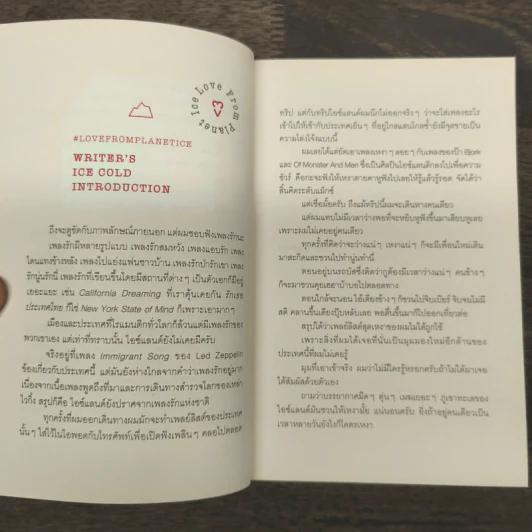 Ice Love From Planet
<3
#LOVEFROMPLANETICE
WRITER'S
ICE COLD
INTRODUCTION
ถึงจะดูขัดกับภาพลักษณ์ภายนอก แต่ผมชอบฟังเพลงรักนะ
เพลงรักมีหลายรูปแบบ เพลงรักสมหวัง เพลงแอบรัก เพลง
โดนแทงข้างหลัง เพลงไปแย่งแฟนชาวบ้าน เพลงรักบ้ารักเขา เพลง
รักนู่นรักนี่ เพลงรักที่เขียนขึ้นโดยมีสถานที่ต่างๆ เป็นตัวเอกก็มีอยู่
เยอะแยะ เช่น California Dreaming ที่เราคุ้นเคยกัน รักเธอ
ประเทศไทย ก็ใช่ New York State of Mind ก็เพราะเอามากๆ
เมืองและประเทศที่โรแมนติกทั่วโลกก็ล้วนแต่มีเพลงรักของ
พวกเขาเอง แต่เท่าที่ทราบนั้น ไอซ์แลนด์ยังไม่เคยมีครับ
จริงอยู่ที่เพลง Immigrant Song ของ Led Zeppelin
ข้องเกี่ยวกับประเทศนี้ แต่มันยังห่างไกลจากคำว่าเพลงรักอยู่มาก
เนื่องจากเนื้อเพลงพูดถึงที่มาและการเดินทางสำรวจโลกของเหล่า
ไวกิ้ง สรุปก็คือ ไอซ์แลนด์ยังปราศจากเพลงรักแห่งชาติ
ทุกครั้งที่ผมออกเดินทางผมมักจะทำเพลย์ลิสต์ของประเทศ
นั้นๆ ใส่ไว้ในไอพอดกับโทรศัพท์เพื่อเปิดฟังเพลินๆ คลอไปตลอด
ทริป แต่กับทริปไอซ์แลนด์ผมนึกไม่ออกจริงๆ ว่าจะใส่เพลงอะไร
เข้าไปให้เข้ากับประเทศเย็นๆ ที่อยู่ไกลแสนไกลซ้ำยังมีจุดขายเป็น
ความโล่งโจ้งแบบนี้
ผมเลยได้แต่ยัดเอาเพลงเหงาๆ ลอยๆ กับเพลงของป้า Bjork
และ Of Monster And Men ซึ่งเป็นศิลปินไอซ์แลนด์ลงไปเพื่อความ
ชัวร์ คือกะจะฟังให้เหงาตายคาหูฟังไปเลยให้รู้แล้วรู้รอด จัดได้ว่า
สิ้นคิดระดับแม็กซ์
แต่เชื่อมั้ยครับ ถึงแม้ทริปนี้ผมจะเดินทางคนเดียว
แต่ผมแทบไม่มีเวลาว่างพอที่จะหยิบหูฟังขึ้นมาเสียบหูเลย
เพราะผมไม่เคยอยู่คนเดียว
ทุกครั้งที่คิดว่าจะว่างแน่ๆ เหงาแน่ๆ ก็จะมีเพื่อนใหม่เดิน
มาสะกิดและชวนไปทำนู่นทำนี่
ตอนอยู่บนรถบัสซึ่งคิดว่ากูต้องมีเวลาว่างแน่ๆ คนข้างๆ
ก็จะมาชวนคุยเฮฮาบ้าบอไปตลอดทาง
ตอนใกล้จะนอน ไอ้เตียงข้างๆ ก็ชวนไปจิบเบียร์ จิบจนไม่มี
สติ คลานขึ้นเตียงปุ๊บหลับเลย พอตื่นขึ้นมาก็ออกเที่ยวต่อ
สรุปได้ว่าเพลย์ลิสต์สุดเหงาของผมไม่ได้ถูกใช้
เพราะสิ่งที่ผมได้เจอที่นั่นเป็นมุมมองใหม่อีกด้านของ
ประเทศนี้ที่ผมไม่เคยรู้
มุมที่เอาเข้าจริง ผมว่าไม่มีใครรู้หรอกครับถ้าไม่ได้มาเจอ
ได้สัมผัสด้วยตัวเอง
ถามว่าบรรยากาศมืดๆ ตุ่นๆ เพลเยอะๆ ภูเขาทะเลของ
ไอซ์แลนด์มันชวนให้เหงามั้ย แน่นอนครับ ยิ่งถ้าอยู่คนเดียวเป็น
เวลาหลายวันยังไงก็โคตรเหงา